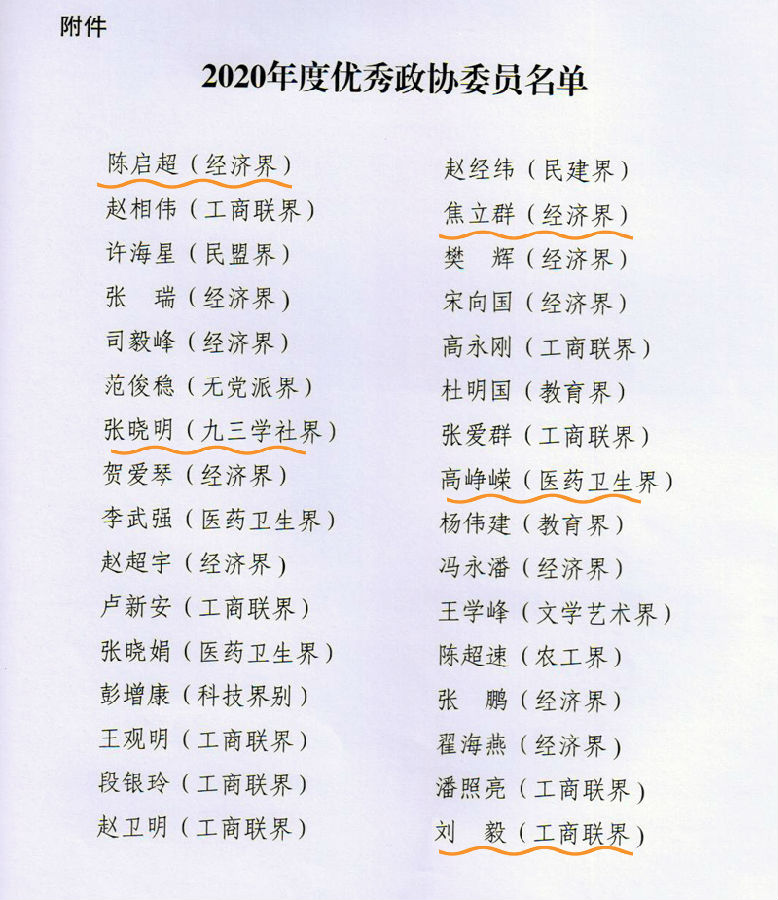 附件
2020年度优秀政协委员名单
陈启超（经济界）
赵相伟（工商联界）
许海星（民盟界）
张　瑞（经济界）
司毅峰（经济界）
范俊稳（无党派界）
张晓明（九三学社界）
贺爱琴（经济界）
李武强（医药卫生界）
赵超宇（经济界）
卢新安（工商联界）
张晓娟（医药卫生界）
彭增康（科技界别）
王观明（工商联界）
段银玲（工商联界）
赵卫明（工商联界）
赵经纬（民建界）
焦立群（经济界）
樊　辉（经济界）
宋向国（经济界）
高永刚（工商联界）
杜明国（教育界）
张爱群（工商联界）
高峥嵘（医药卫生界）
杨伟建（教育界）
冯永潘（经济界）
王学峰（文学艺术界）
陈超速（农工界）
张　鹏（经济界）
翟海燕（经济界）
潘照亮（工商联界）
刘　毅（工商联界）